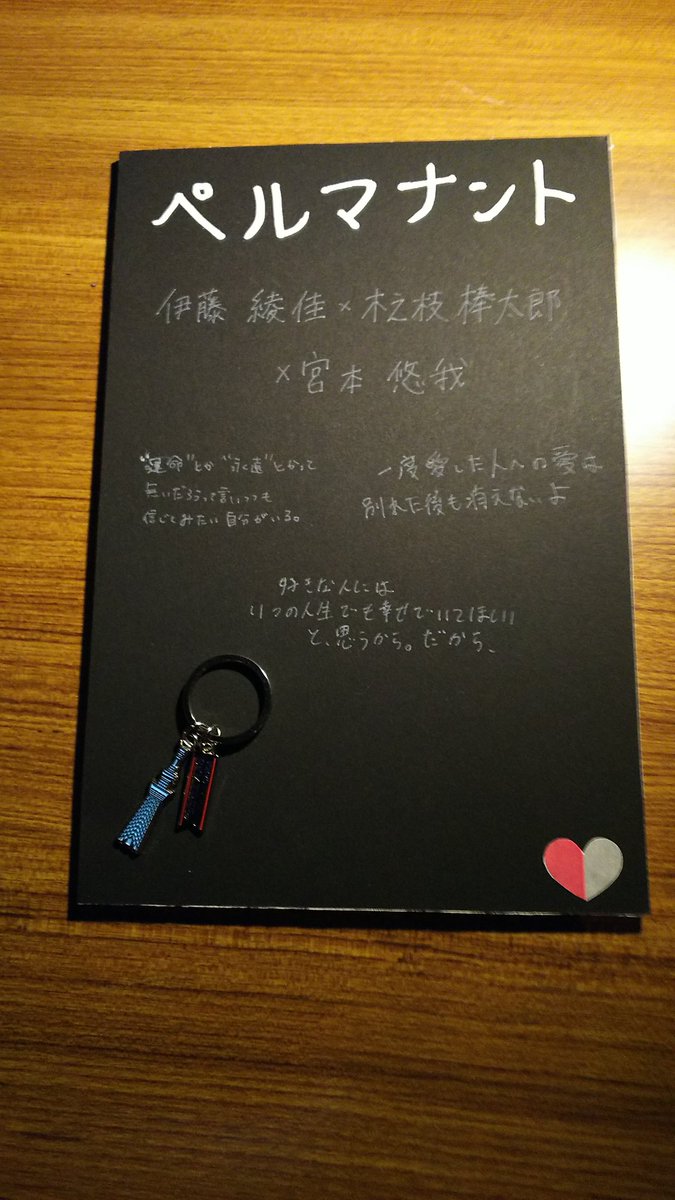 ペルマナント
伊藤 綾佳×木之枝 棒太郎
×宮本 悠我
"運命"とか"永遠"とかって
無いだろうって言いつつも
信じてみたい自分がいる。
一度愛した人への愛は
別れた後も消えないよ
好きな人には
いつの人生でも幸せでいてほしい
と、思うから。だから、